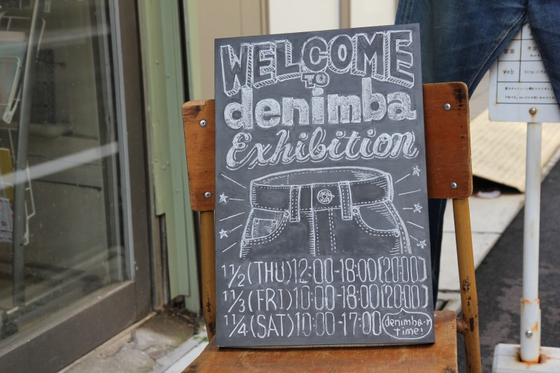 WELCOME
TO
denimba
Exhibition
11/2(THU)12:00-18:00(20:00)
11/3(FRI)10:00-18:00(20:00)
11/4(SAT)10:00-17:00
denimba-r
time!